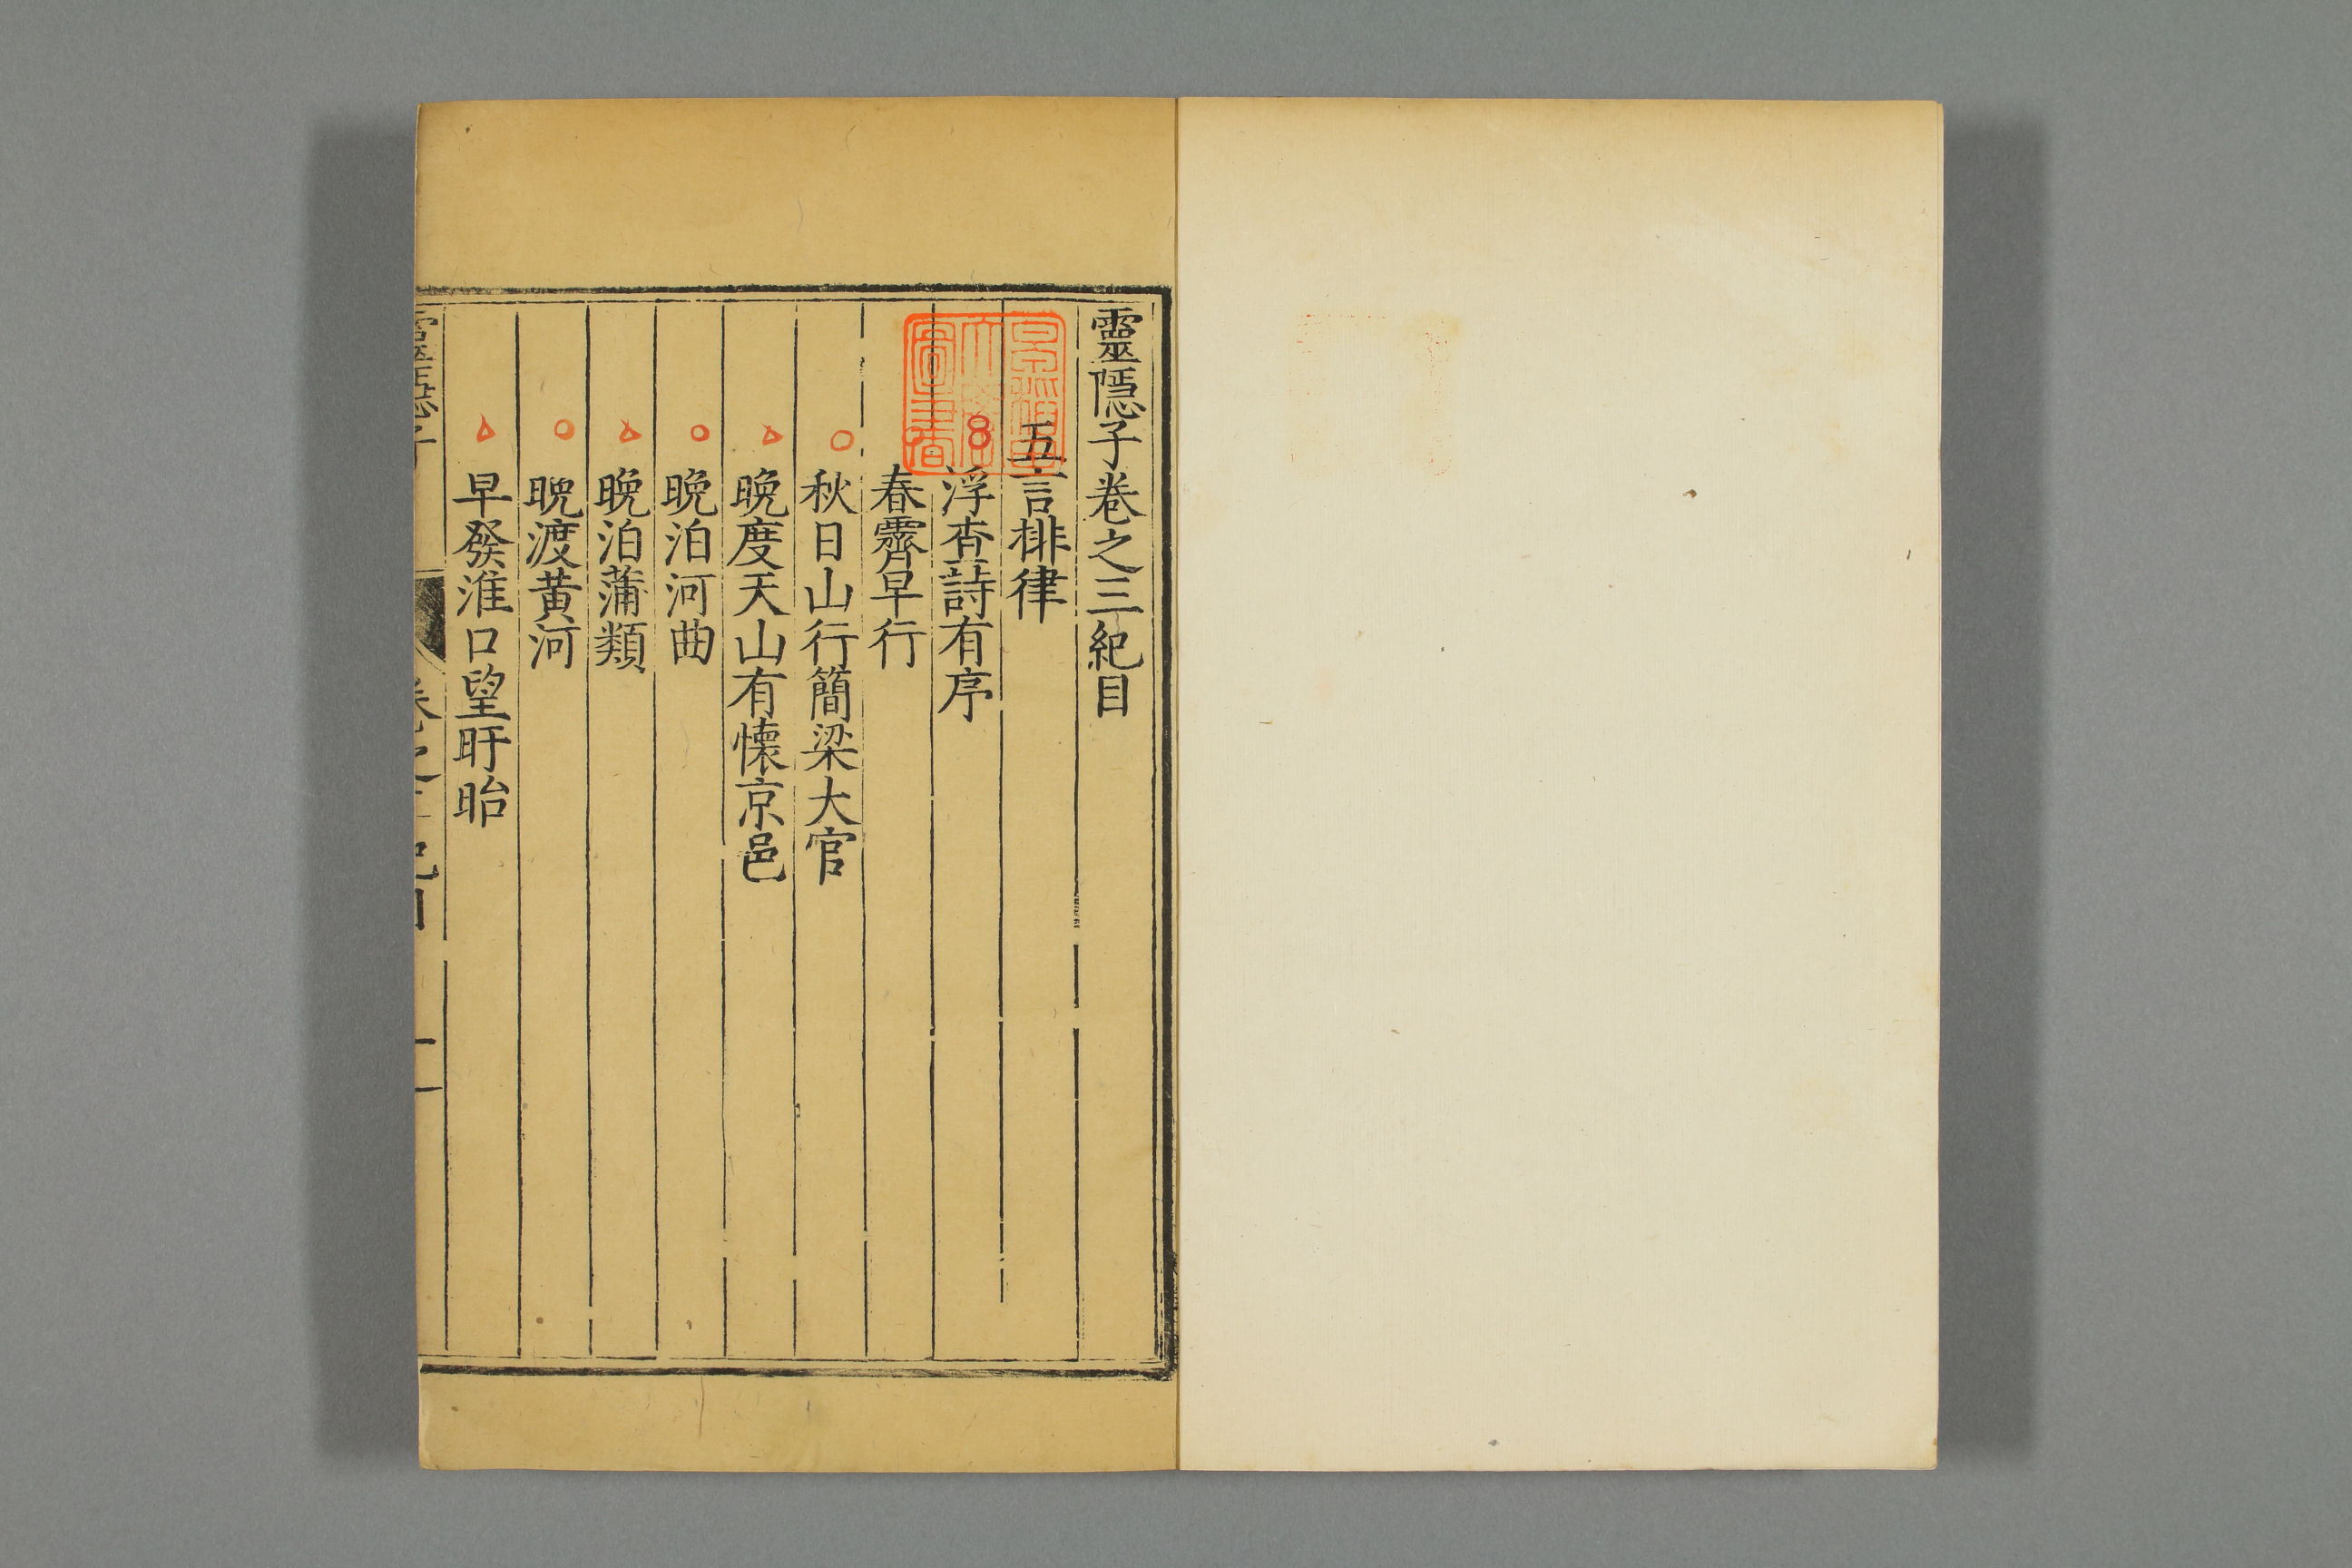 靈隱子卷之三紀目
五言排律
浮査詩有序
春霽早行
秋日山行簡梁大官
晚度天山有懷京邑
晚泊河曲
晚泊蒲類
晚渡黃河
早發淮口望盱眙
靈隱子
卷之三紀目
一